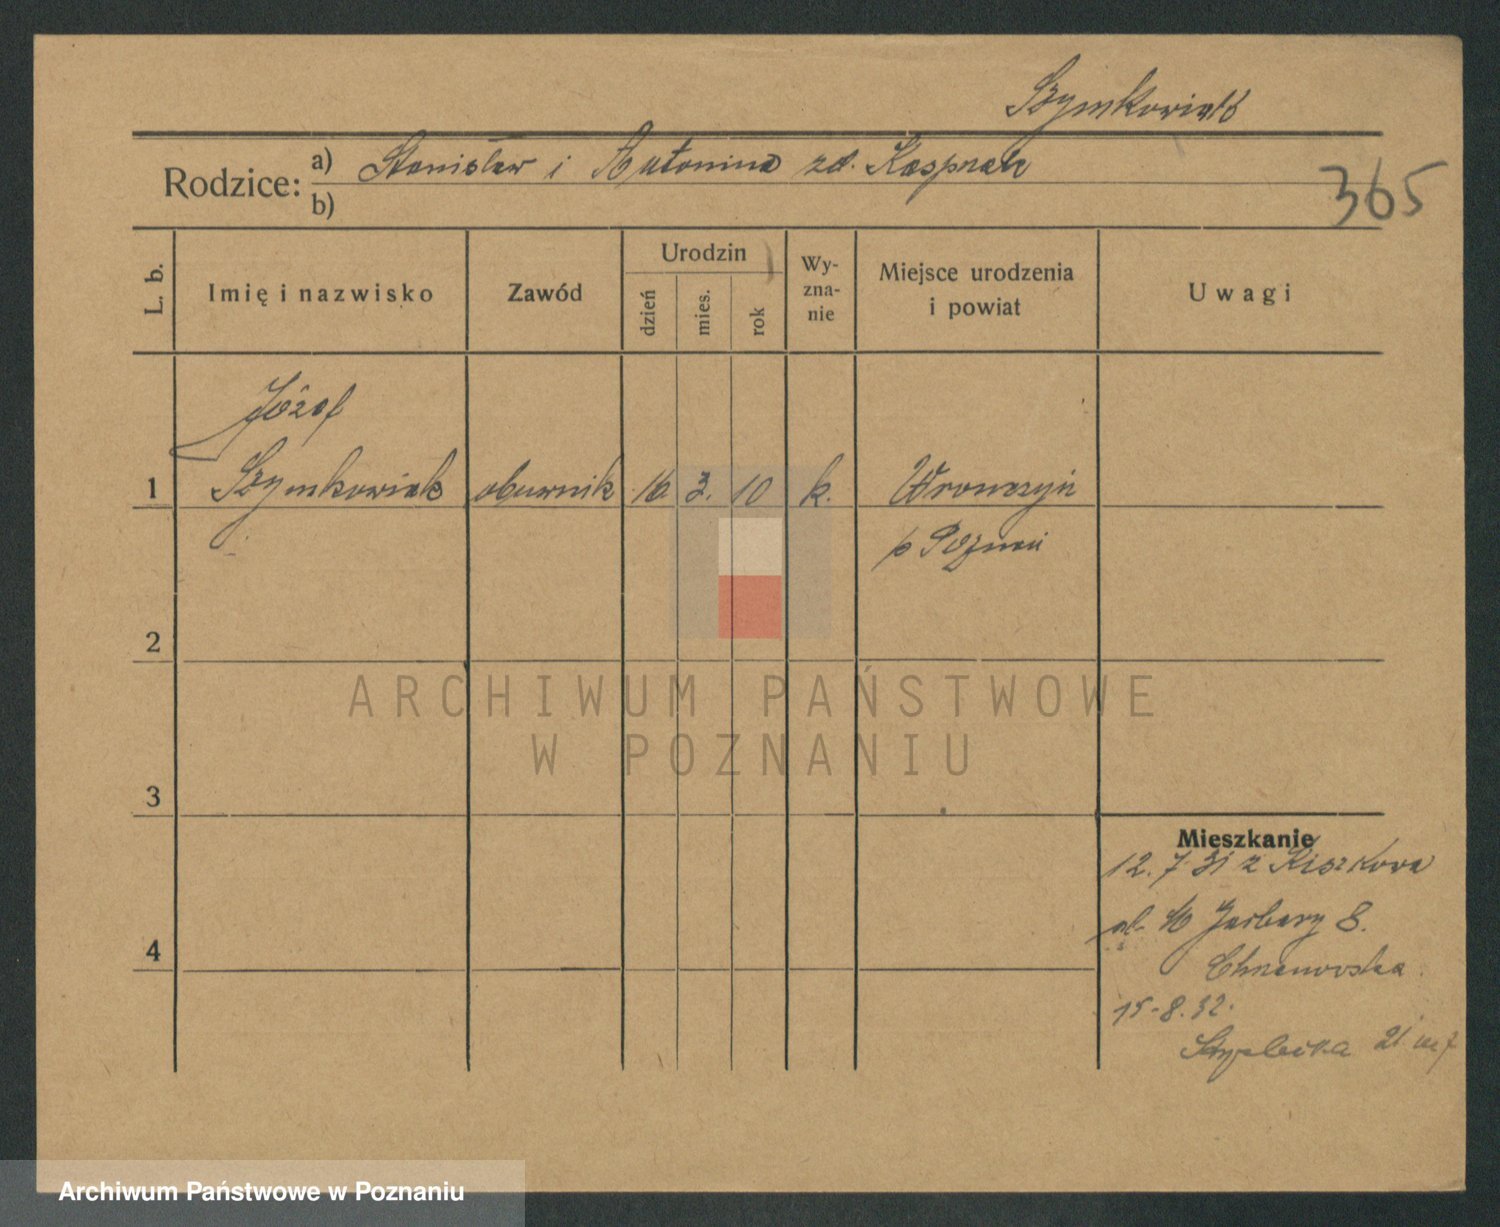 Szymkowiak
Rodzice: a) Stanisław i Antonina zd. Kasprzak
b)
365
L. b.
Imię i nazwisko
Zawód
Urodzin
dzień
mies.
rok
Wy-
zna-
nie
Miejsce urodzenia
i powiat
Uwagi
Józef
1 Szymkowiak oburnik 16 3. 10 k. Wronczyn
p Poznań
2
ARCHIWUM PAŃSTWOWE
W POZNANIU
3
Mieszkanie
12.7.31 z Kiszkowa
ul. 10
8.
4
15.8.32.
Strzelecka 21 m 7
Archiwum Państwowe w Poznaniu